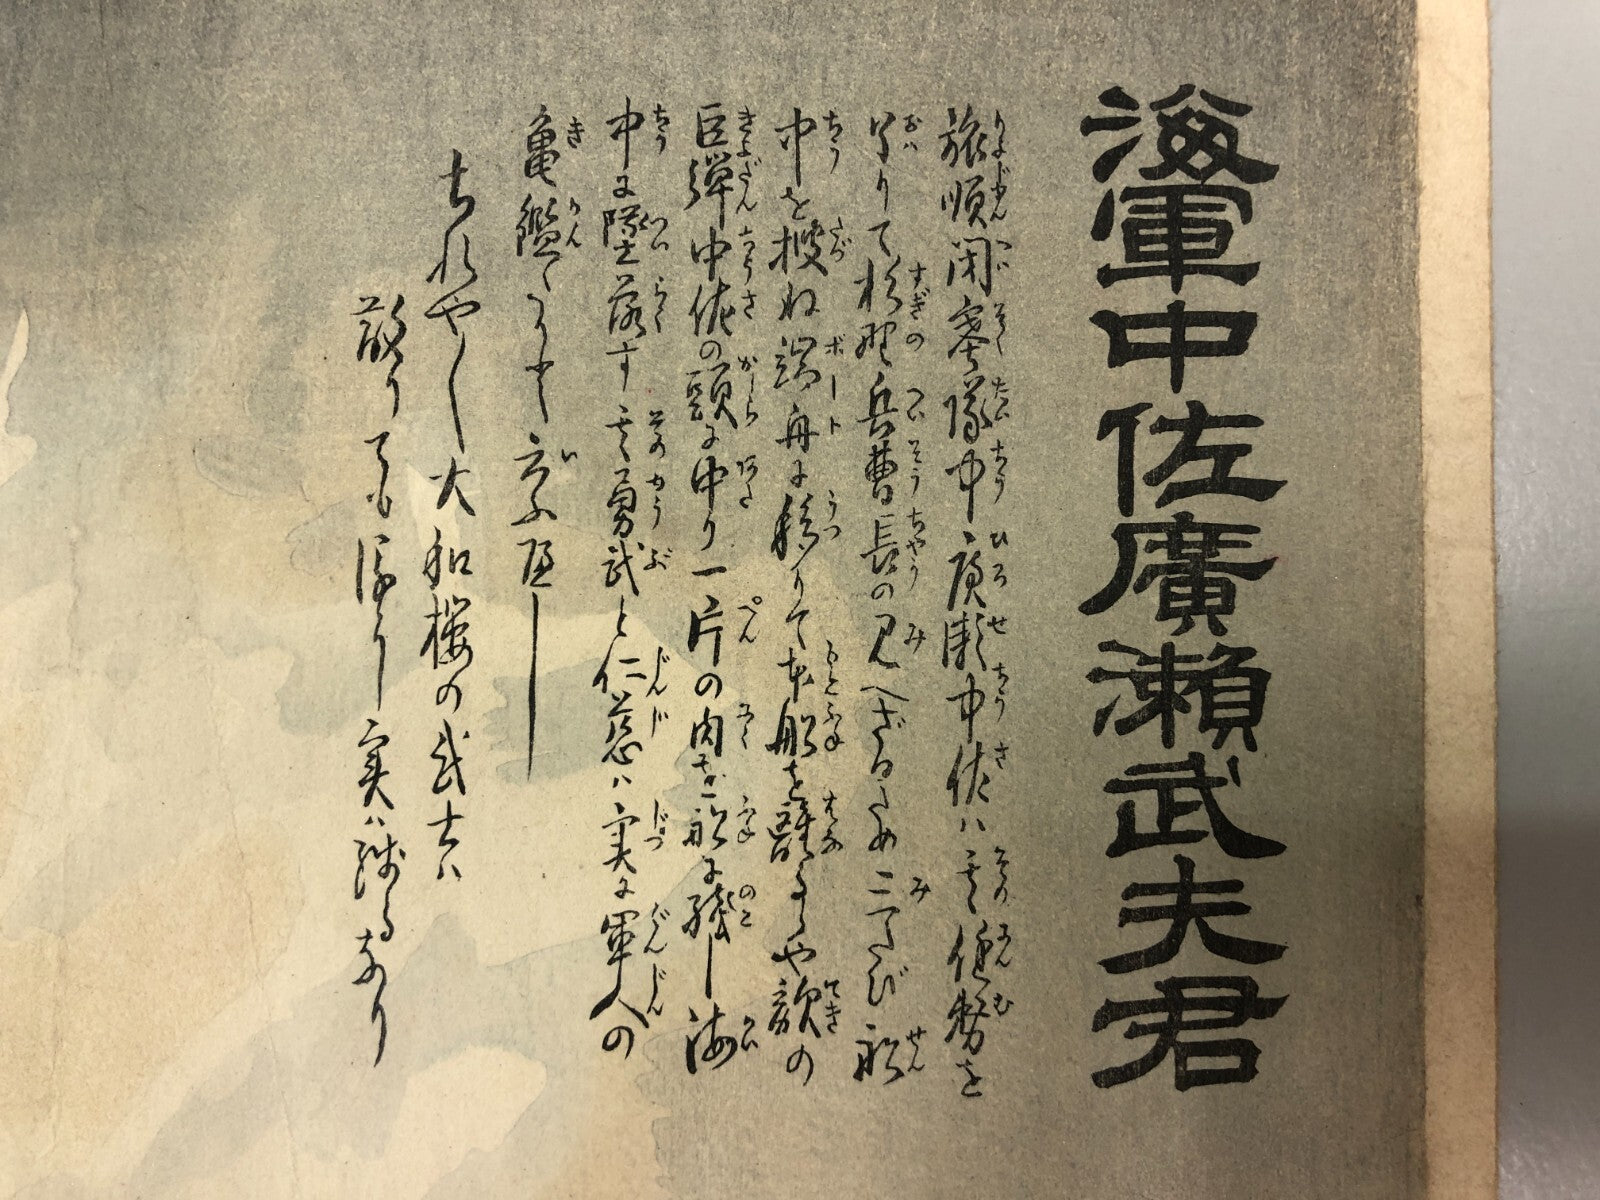 海軍中佐廣瀬武夫君
旅順閉塞隊中廣瀬中佐ハ其任務を
りて杉野兵曹長の見へざるため三たび船
中を捜ね端舟に移りて本船を離るゝや敵の
巨弾中佐の頭に中り一片の肉を船に残し海
中に墜落す其勇武と仁慈ハ実に軍人の
亀鑑といふべし
ちれやちれ大和桜の武士ハ
散りても
実ハ残るなり